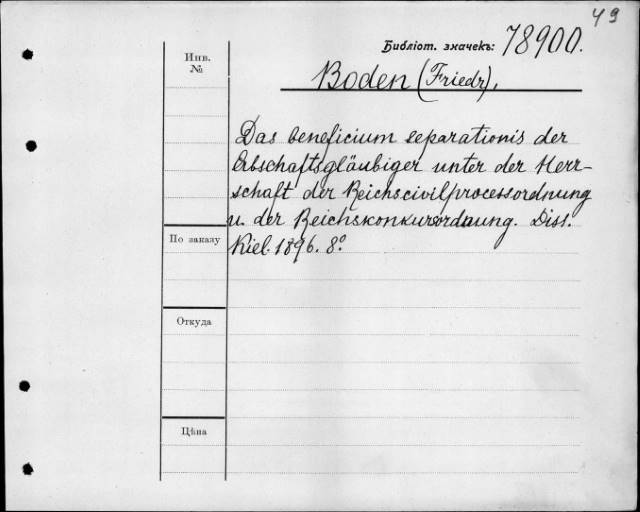 49
Библіот. значекъ: 78900.
Инв.
№
Boden (Friedr),
Das beneficium separationis der
Erbschaftsgläubiger unter der Herr-
schaft der Reichscivilprocessordnung
u. der Reichskonkursordnung. Diss.
Kiel. 1896. 8º
По заказу
Откуда
Цѣна